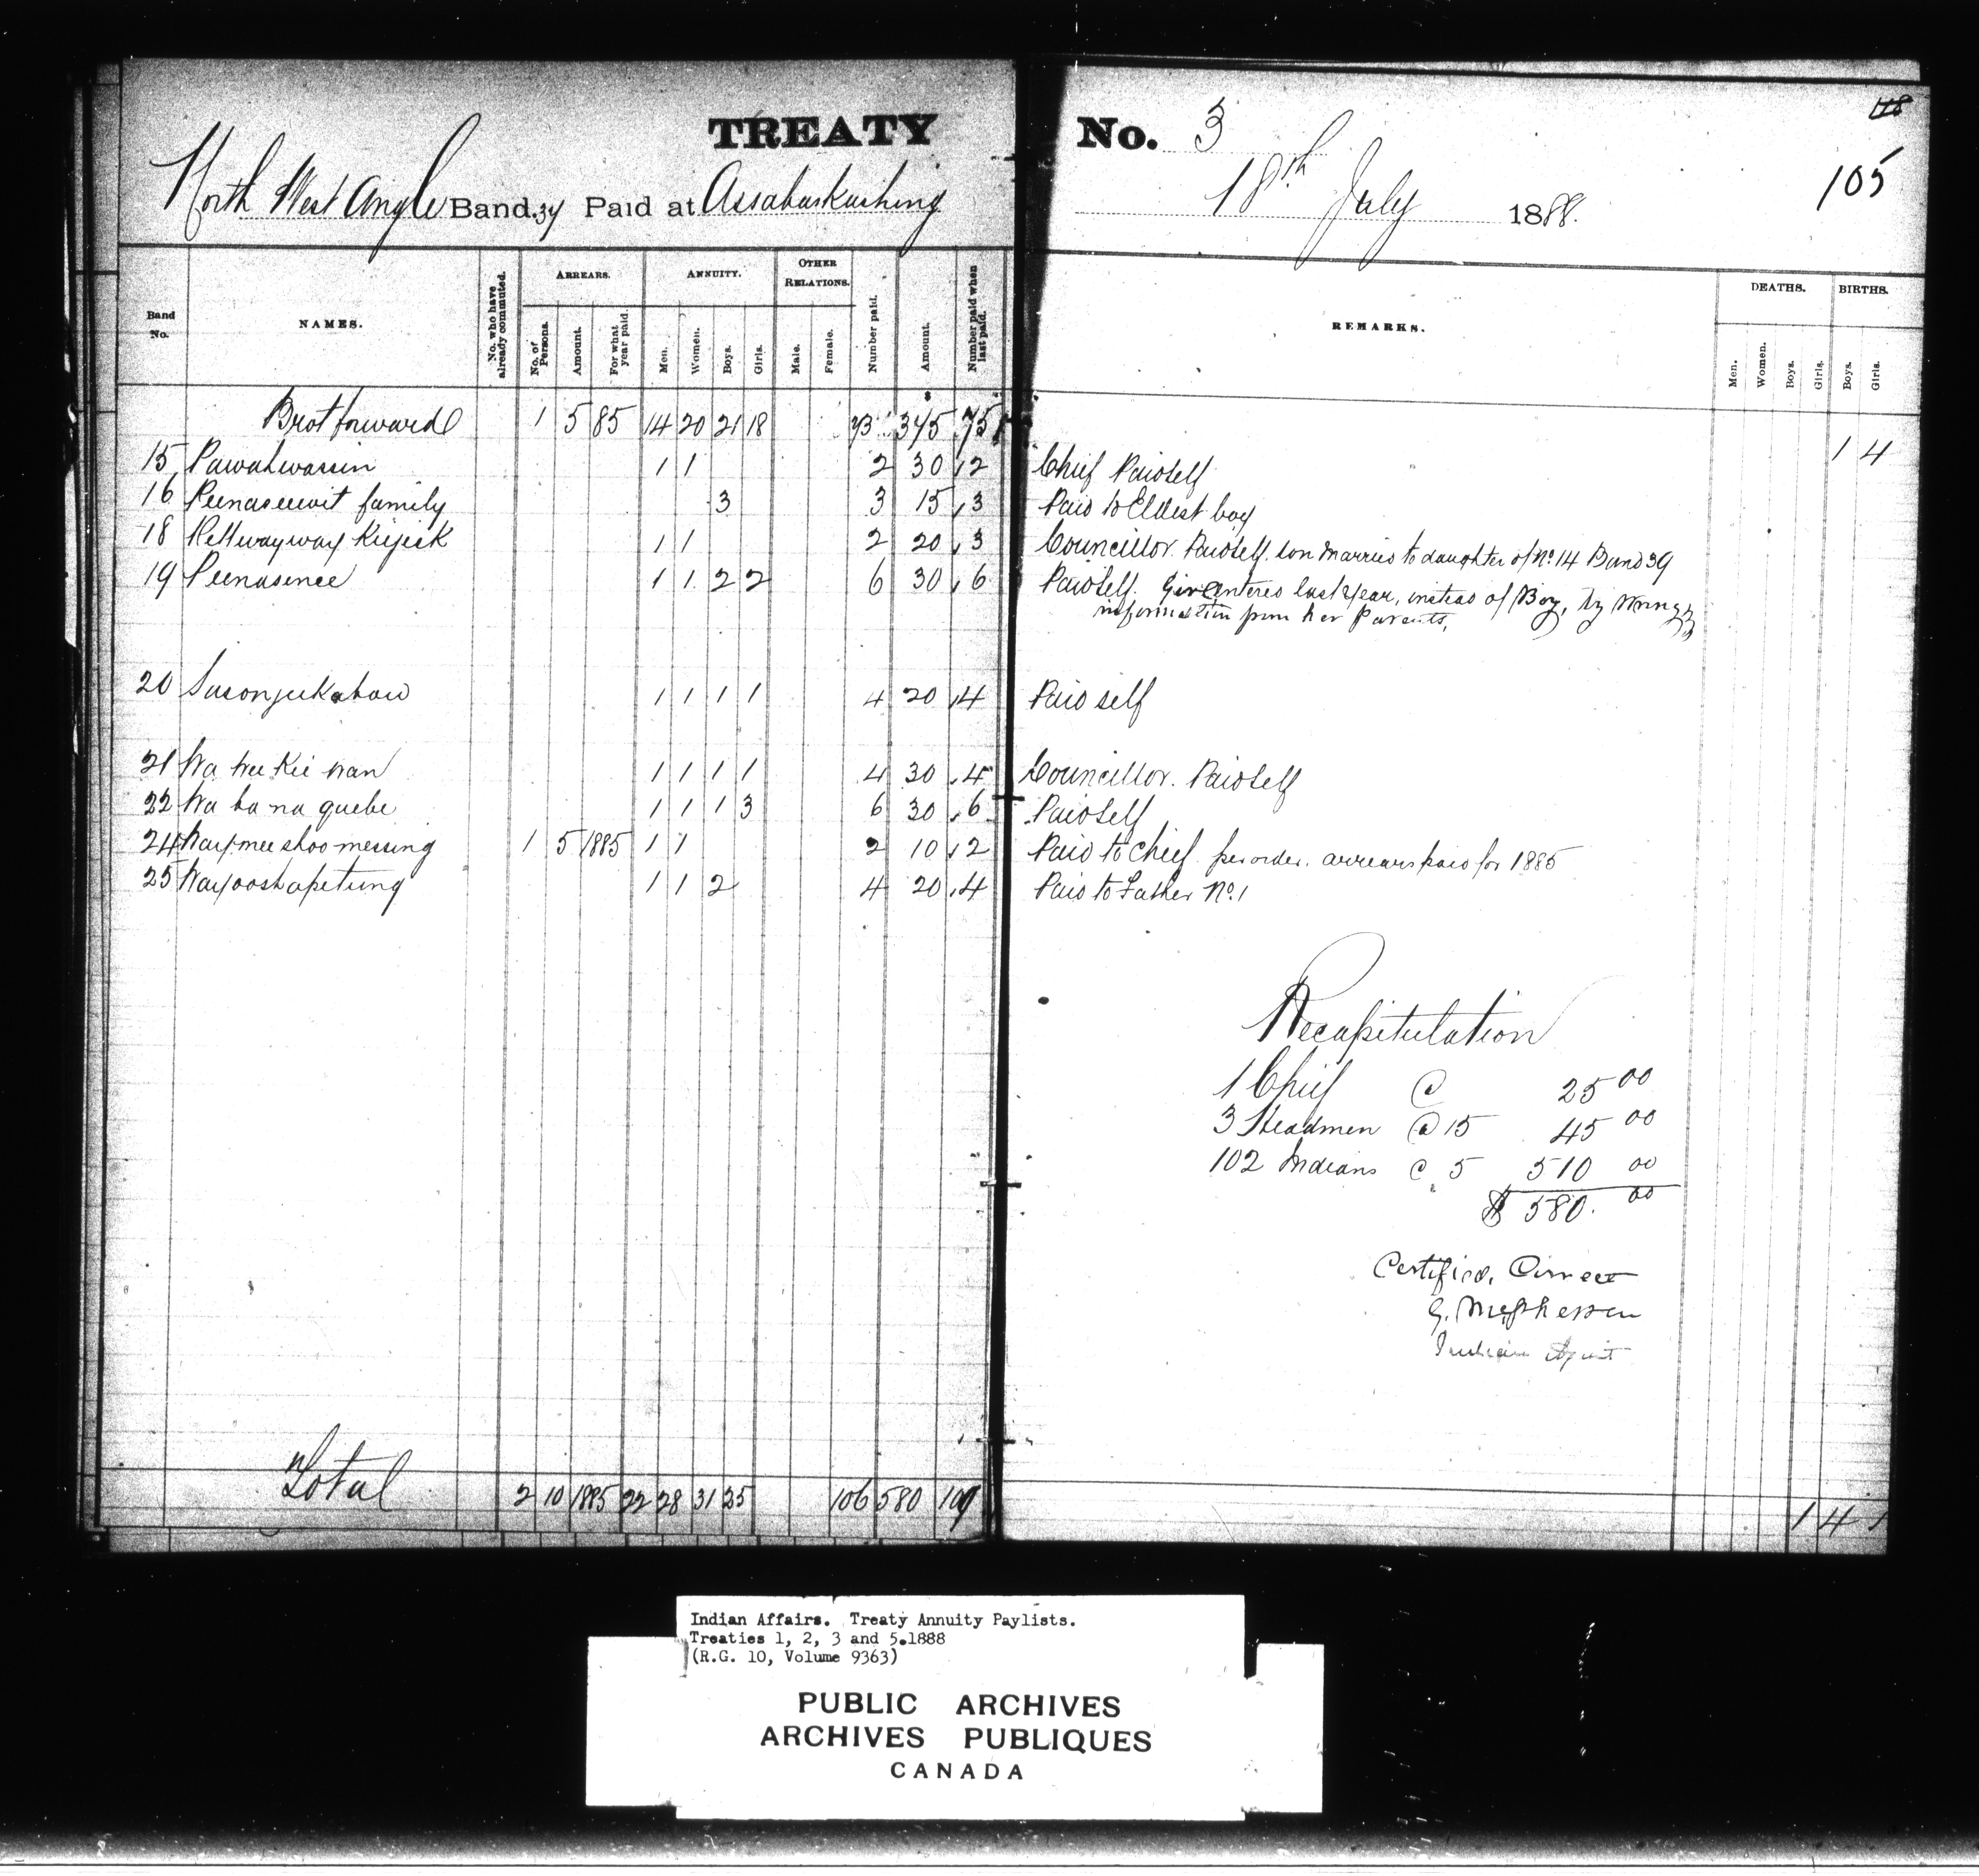 TREATY No. 3
118
105
North West Angle Band. 34 Paid at Assabaskashing
18th July 1888.
Band No. NAMES. No. who have already commuted. ARREARS. No. of Persons. Amount. For what year paid. ANNUITY. Men. Women. Boys. Girls. OTHER RELATIONS. Male. Female. Number paid. Amount. Number paid when last paid. REMARKS. DEATHS. Men. Women. Boys. Girls. BIRTHS. Boys. Girls.
$
Brot forward 1 5 85 14 20 21 18 73 375 75 1 4
15 Pawahwassin 1 1 2 30 2 Chief Paid Self
16 Peenaseewit family 3 3 15 3 Paid to Eldest boy
18 Kettwayway Keejick 1 1 2 20 3 Councillor. Paid Self. son married to daughter of No. 14 Band 39
19 Peenasence 1 1 2 2 6 30 6 Paid Self. Girl entered last year, instead of Boy, by wrong
information from her Parents,
20 Sasonjeekabow 1 1 1 1 4 20 4 Paid self
21 Wa wee Kee wan 1 1 1 1 4 30 4 Councillor. Paid Self
22 Wa ba na quebe 1 1 1 3 6 30 6 Paid Self
24 Waymeeshoo messing 1 5 1885 1 1 2 10 2 Paid to Chief per order. arrears paid for 1885
25 Wayooshapetung 1 1 2 4 20 4 Paid to Father No. 1
Recapitulation
1 Chief @ 25 00
3 Headmen @ 15 45 00
102 Indians @ 5 510 00
$ 580. 00
Certified, Correct
G. McPherson
Indian Agent
Total 2 10 1885 22 28 31 25 106 580 109 1 4 1
Indian Affairs. Treaty Annuity Paylists.
Treaties 1, 2, 3 and 5.1888
(R.G. 10, Volume 9363)
PUBLIC ARCHIVES
ARCHIVES PUBLIQUES
CANADA